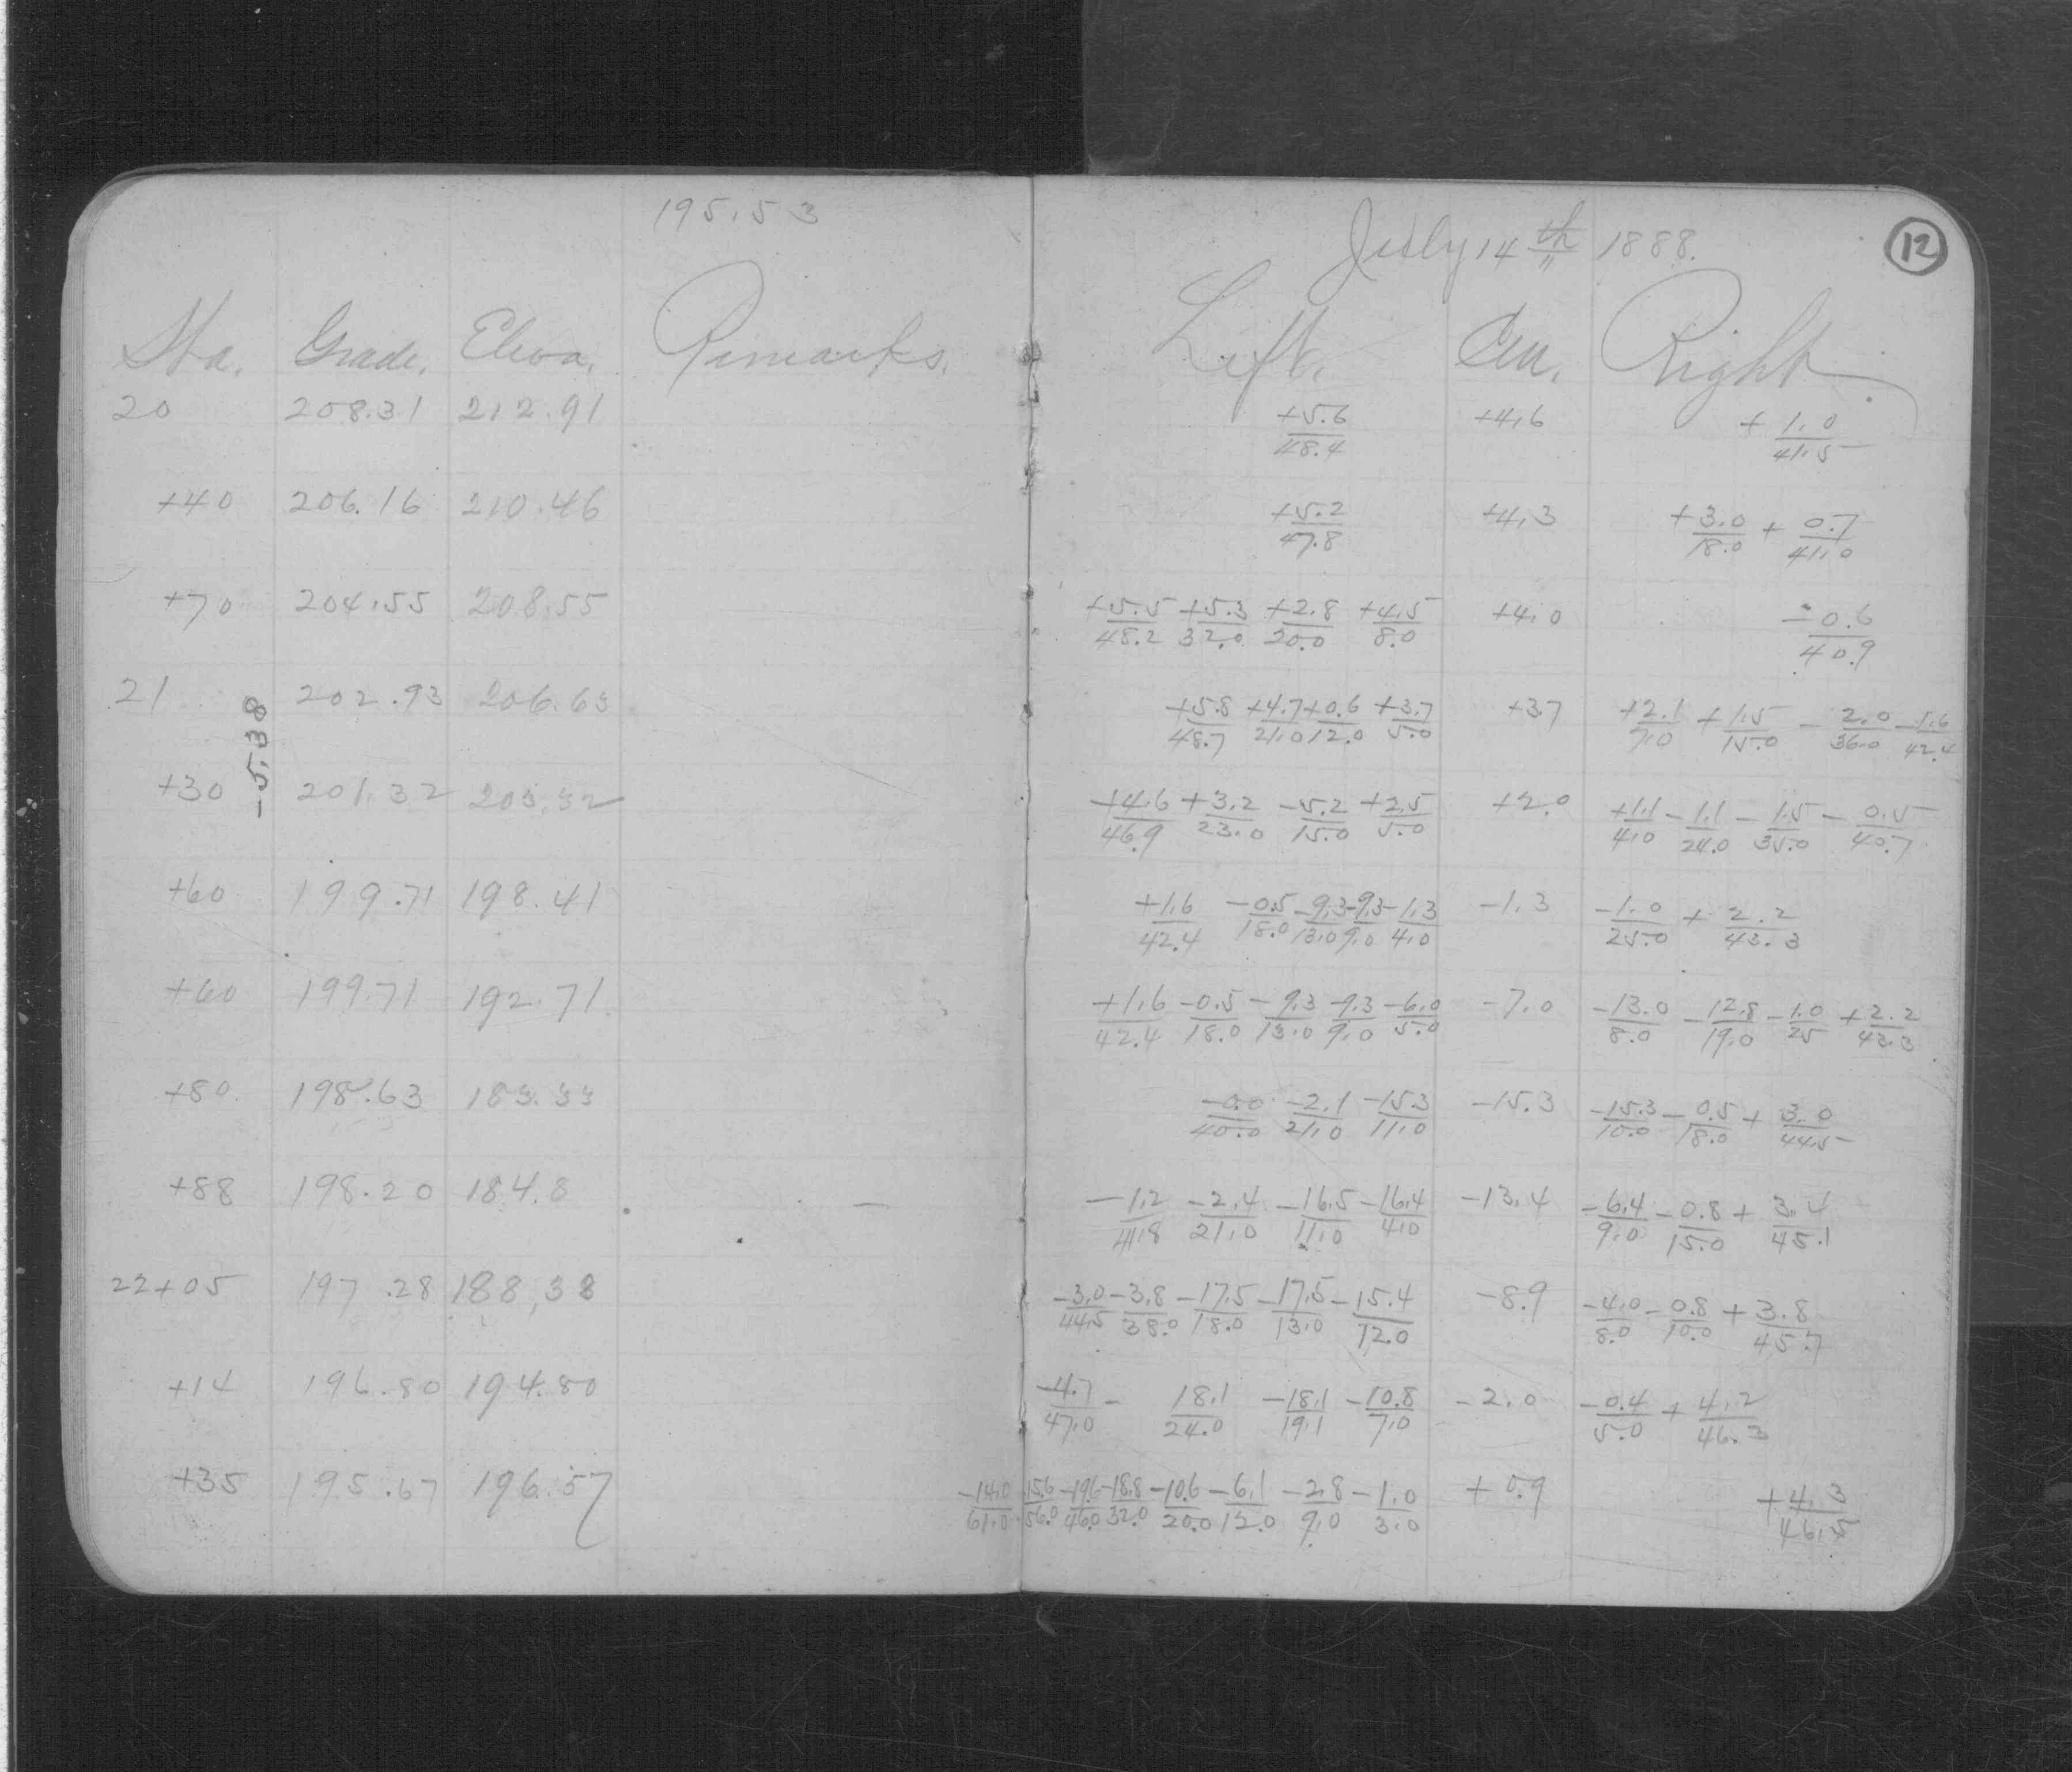 195.53
July 14th 1888.
12
Sta. Grade. Eleva. Remarks. Left. Cen. Right
20 208.31 212.91 +5.6/48.4 +4.6 +1.0/41.5
+40 206.16 210.46 +5.2/47.8 +4.3 +3.0/18.0 +0.7/41.0
+70 204.55 208.55 +5.5/48.2 +5.3/32.0 +2.8/20.0 +4.5/8.0 +4.0 -0.6/40.9
21 202.93 206.63 +5.8/48.7 +4.7/21.0 +0.6/12.0 +3.7/5.0 +3.7 +2.1/7.0 +1.5/15.0 -2.0/36.0 -1.6/42.4
-5.38
+30 201.32 203.32 +4.6/46.9 +3.2/23.0 -5.2/15.0 +2.5/5.0 +2.0 +1.1/4.0 -1.1/24.0 -1.5/35.0 -0.5/40.7
+60 199.71 198.41 +1.6/42.4 -0.5/18.0 -9.3/13.0 -9.3/9.0 -1.3/4.0 -1.3 -1.0/25.0 +2.2/43.3
+60 199.71 192.71 +1.6/42.4 -0.5/18.0 -9.3/13.0 -9.3/9.0 -6.0/5.0 -7.0 -13.0/8.0 -12.8/19.0 -1.0/25 +2.2/43.3
+80 198.63 183.33 -0.0/40.0 -2.1/21.0 -15.3/11.0 -15.3 -15.3/10.0 -0.5/18.0 +3.0/44.5
+88 198.20 184.8 — -1.2/41.8 -2.4/21.0 -16.5/11.0 -16.4/4.0 -13.4 -6.4/9.0 -0.8/15.0 +3.4/45.1
22+05 197.28 188.38 -3.0/44.5 -3.8/38.0 -17.5/18.0 -17.5/13.0 -15.4/12.0 -8.9 -4.0/8.0 -0.8/10.0 +3.8/45.7
+14 196.80 194.80 -4.7/47.0 -18.1/24.0 -18.1/19.1 -10.8/7.0 -2.0 -0.4/5.0 +4.2/46.3
+35 195.67 196.57 -14.0/61.0 -15.6/56.0 -19.6/46.0 -18.8/32.0 -10.6/20.0 -6.1/12.0 -2.8/9.0 -1.0/3.0 +0.9 +4.3/46.5